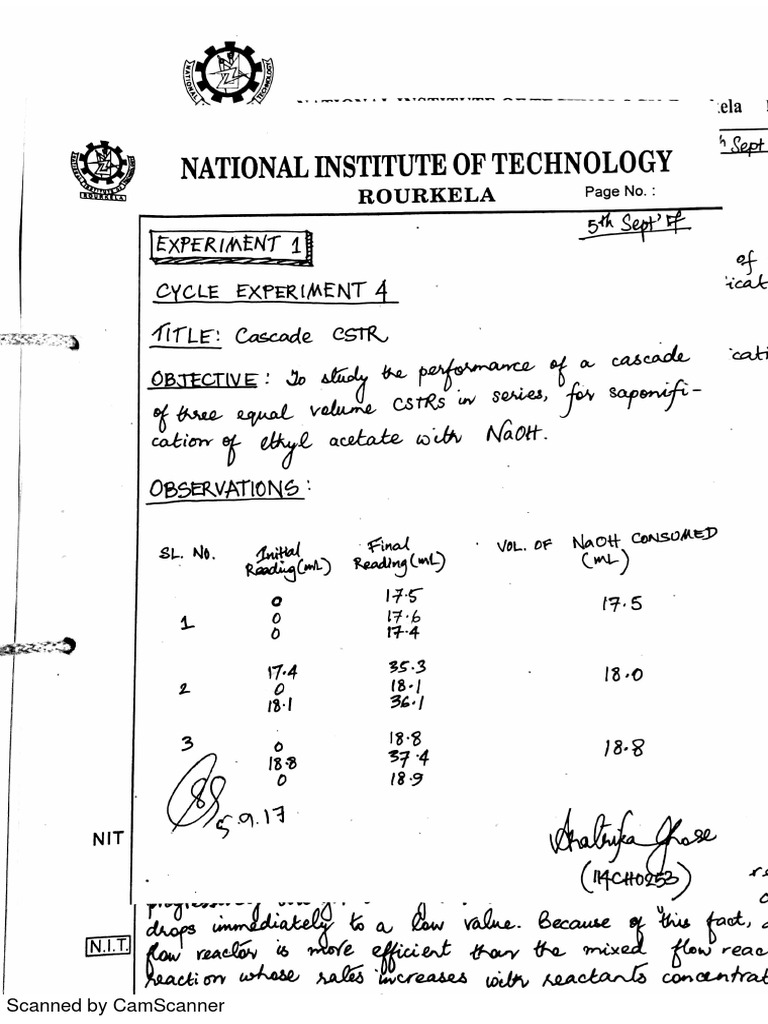 NATIONAL INSTITUTE OF TECHNOLOGY
ROURKELA
Page No. :
5th Sept' 17
EXPERIMENT 1
CYCLE EXPERIMENT 4
TITLE: Cascade CSTR
OBJECTIVE: To study the performance of a cascade
of three equal volume CSTRs in series, for saponifi-
cation of ethyl acetate with NaOH.
OBSERVATIONS:
SL. NO. Initial Reading (mL) Final Reading (mL) VOL. OF NaOH CONSUMED (mL)
0 17.5
1 0 17.6 17.5
0 17.4
17.4 35.3
2 0 18.1 18.0
18.1 36.1
3 0 18.8
18.8 37.4 18.8
0 18.9
5.9.17
Shatrifa Ghose
(114CH0253)
NIT
drops immediately to a low value. Because of this fact,
flow reactor is more efficient than the mixed flow reac
N.I.T.
reaction whose rates increases with reactants concentrat
Scanned by CamScanner